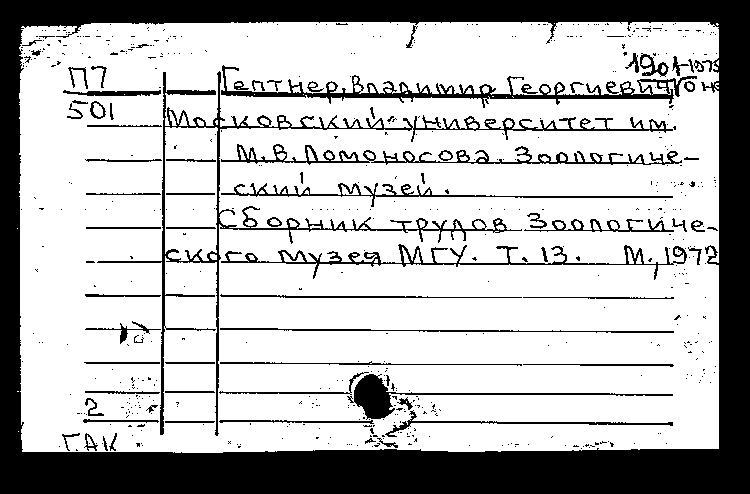 1901-1975
П7 Гептнер, Владимир Георгиевич
501 Московский университет им.
М.В. Ломоносова. Зоологиче-
ский музей.
Сборник трудов Зоологиче-
ского музея МГУ. Т. 13. М., 1972
2
ГАК